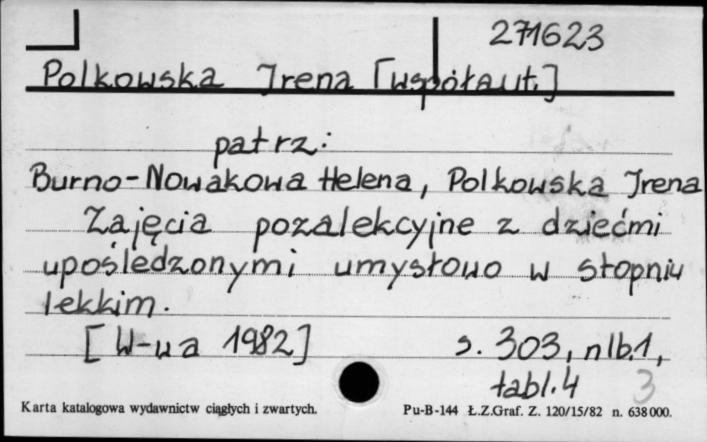 271623
Polkowska Irena [współaut.]
patrz:
Burno-Nowakowa Helena, Polkowska Irena
Zajęcia pozalekcyjne z dziećmi
upośledzonymi umysłowo w stopniu
lekkim.
[W-wa 1982] s. 303, nlb.1,
tabl. 4 3
Karta katalogowa wydawnictw ciągłych i zwartych. Pu-B-144 Ł.Z.Graf. Z. 120/15/82 n. 638000.